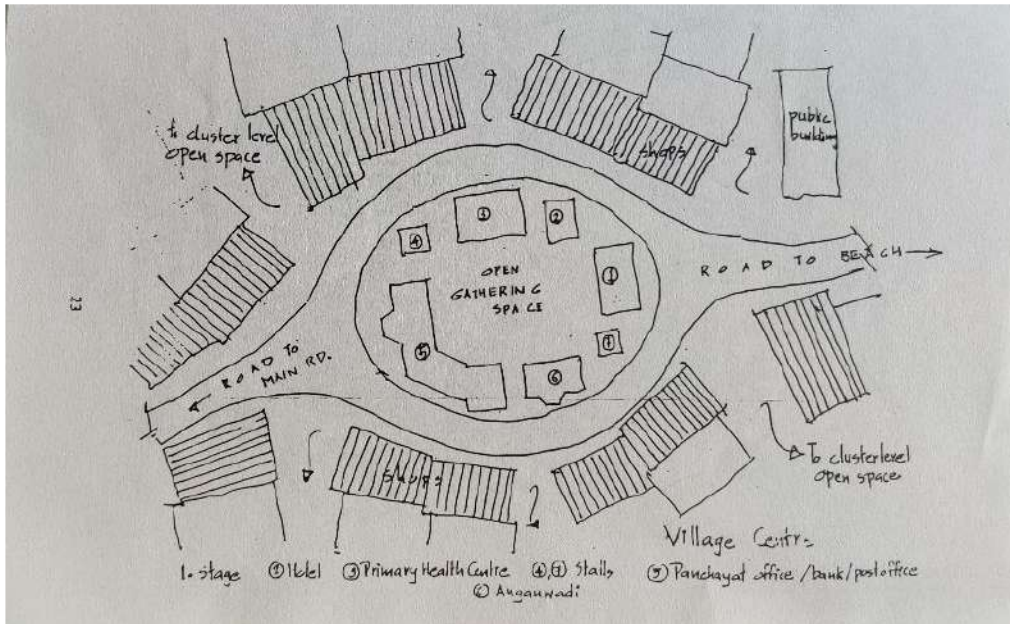 public
building
to cluster level
open space
shops
④
③
②
①
OPEN
GATHERING
SPACE
ROAD TO BEACH
⑤
⑦
⑥
ROAD TO
MAIN RD.
23
shops
To cluster level
open space
Village Centre
1. Stage ② Hotel ③ Primary Health Centre ④,⑦ Stalls ⑤ Panchayat office / bank / post office
⑥ Anganwadi